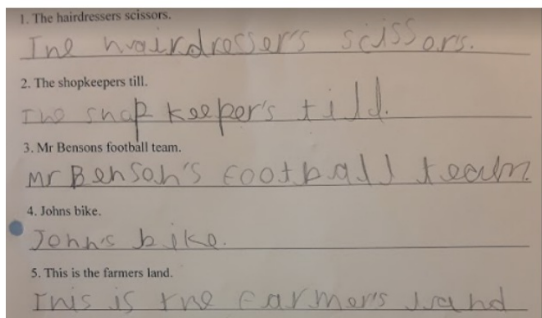 1. The hairdressers scissors.
The hairdresser's scissors.
2. The shopkeepers till.
The shop keeper's till.
3. Mr Bensons football team.
Mr Benson's football team
4. Johns bike.
John's bike.
5. This is the farmers land.
This is the farmer's land